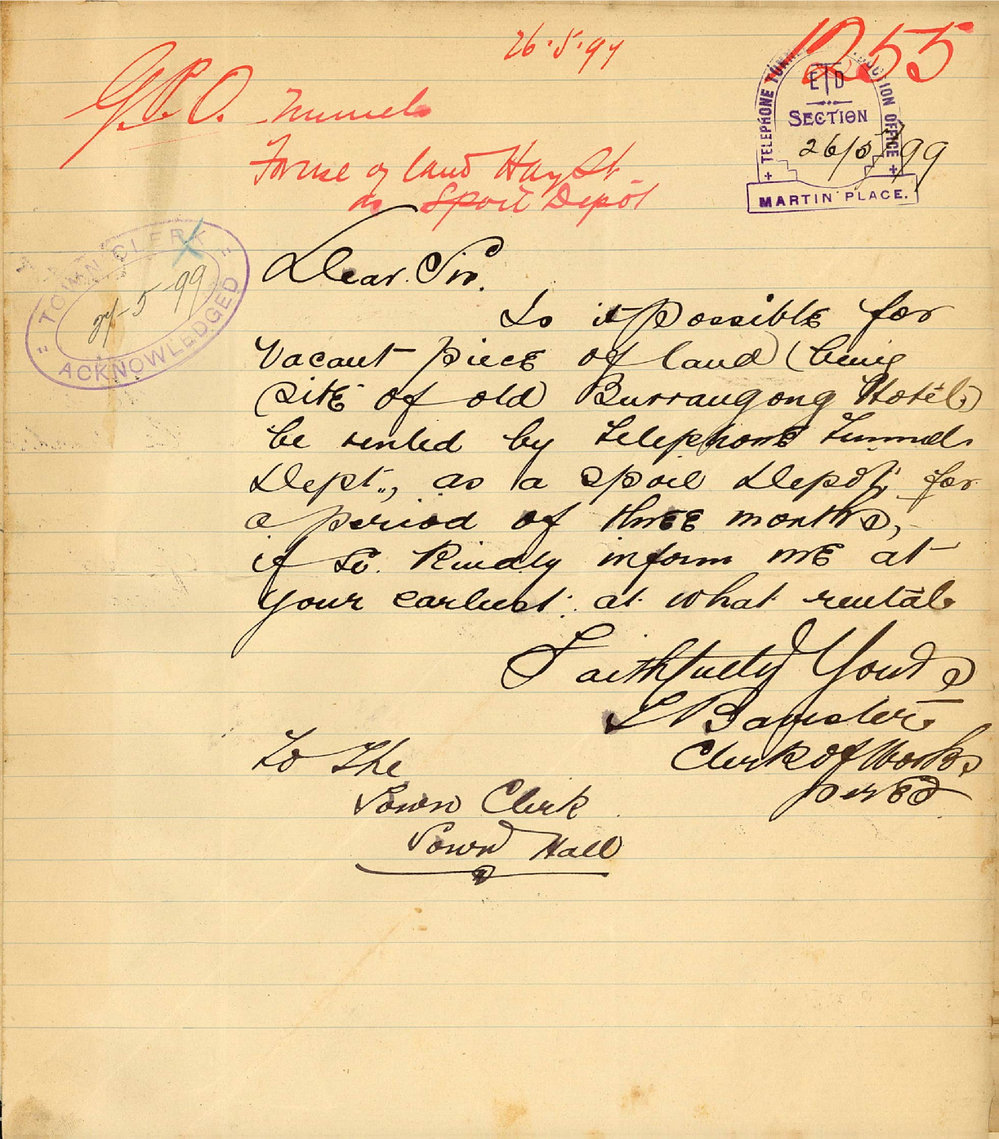 26.5.99
1255
G.P.O. Tunnels
For use of land Hay St
as Spoil Depôt
TELEPHONE TUNNEL CONSTRUCTION OFFICE
ETD
SECTION
26/5/99
MARTIN PLACE.
TOWN CLERK
27-5-99
ACKNOWLEDGED
Dear Sir.
Is it possible for
Vacant piece of land (being
site of old Burrangong Hotel,)
be rented by Telephone Tunnel
Dept., as a spoil Depôt, for
a period of three months,
if so. Kindly inform me at
your earliest. at what rental
Faithfully Yours
Clerk of Works
per
To The
Town Clerk
Town Hall